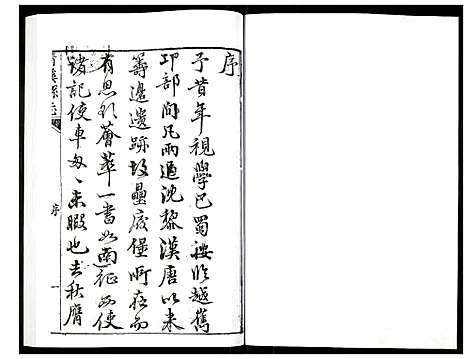 序
予昔年視學巴蜀稔臨越嶲
邛部間凡兩過沈黎漢唐以來
籌邊遺跡故壘廢堡所在而
有思欲薈萃一書如南征西使
諸記使車匆〻未暇也去秋膺
清溪縣志
序
一